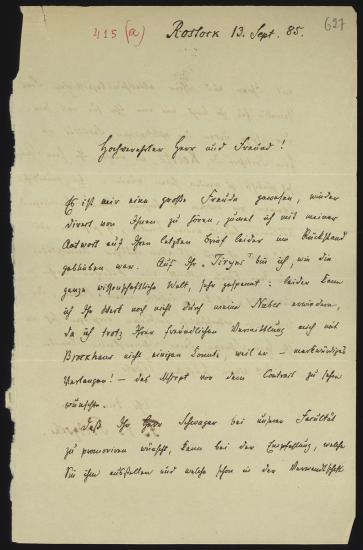 415 (a) Rostock 13. Sept. 85. 697
Hochverehrter Herr und Freund!
Es ist mir eine große Freude gewesen, wieder
direct von Ihnen zu hören, zumal ich mit meiner
Antwort auf Ihren letzten Brief leider im Rückstand
geblieben war. Auf Ihr „Tiryns“ bin ich, wie die
ganze wissenschaftliche Welt, sehr gespannt: leider kann
ich Ihr Wort noch nicht durch meine erwidern,
da ich trotz Ihrer freundlichen Vermittlung mich mit
Brockhaus nicht einigen konnte, weil er – merkwürdiges
Verlangen! – das Mscpt vor dem Contract zu sehen
wünschte.
Daß Ihr Herr Schwager bei unserer Facultät
zu promoviren wünscht, kann bei der Empfehlung, welche
Sie ihm ausstellen und welche schon in der Verwandtschaft